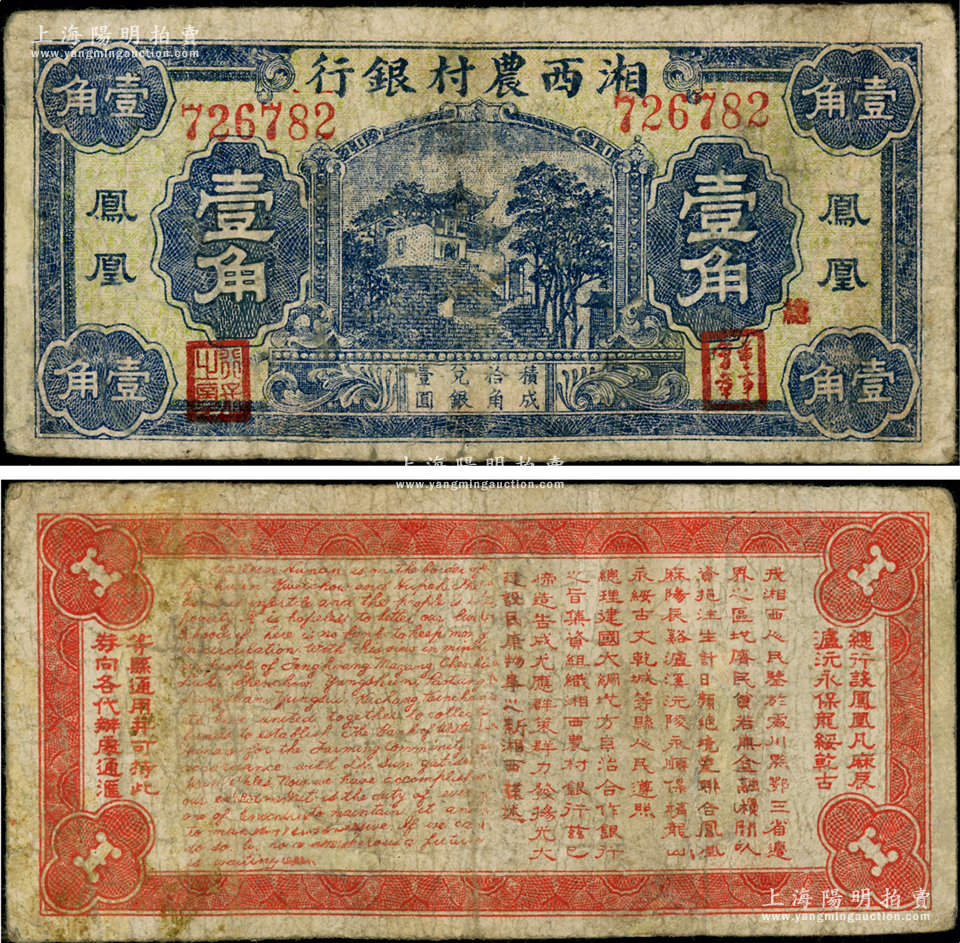 上海陽明拍賣
www.yangmingauction.com
湘西農村銀行
726782
726782
壹角
壹角
壹角
壹角
鳳凰
鳳凰
壹角
壹角
總
積成
拾角
兌銀
壹圓
上海陽明拍賣
www.yangmingauction.com
總行設鳳凰凡麻辰
瀘沅永保龍綏乾古
我湘西人民鑒於處川黔鄂三省邊
界之區地瘠民貧若無金融機關以
資挹注生計日頻絕境爰聯合鳳凰
麻陽辰谿瀘溪沅陵永順保靖龍山
永綏古丈乾城等縣人民遵照
總理建國大綱地方自治合作銀行
之旨集資組織湘西農村銀行茲已
締造告成尤應群策群力發揚光大
建設民康物阜之新湘西謹述
等縣通用并可持此
券向各代辦處通滙
Hunan is in the border of
Kweichow and Hupeh The
infertile and the people is in
poverty. It is hopeless to better our
if here is no bank to keep
in circulation With this view in mind
people of Fenghwang Mazang
united together to
to establish the Bank of West
for the Farming Community
with Dr Sun
Now we have accomplished
our it is the duty of every
one of to maintain it and
to make If we can
do so a future
is waiting
上海陽明拍賣
www.yangmingauction.com